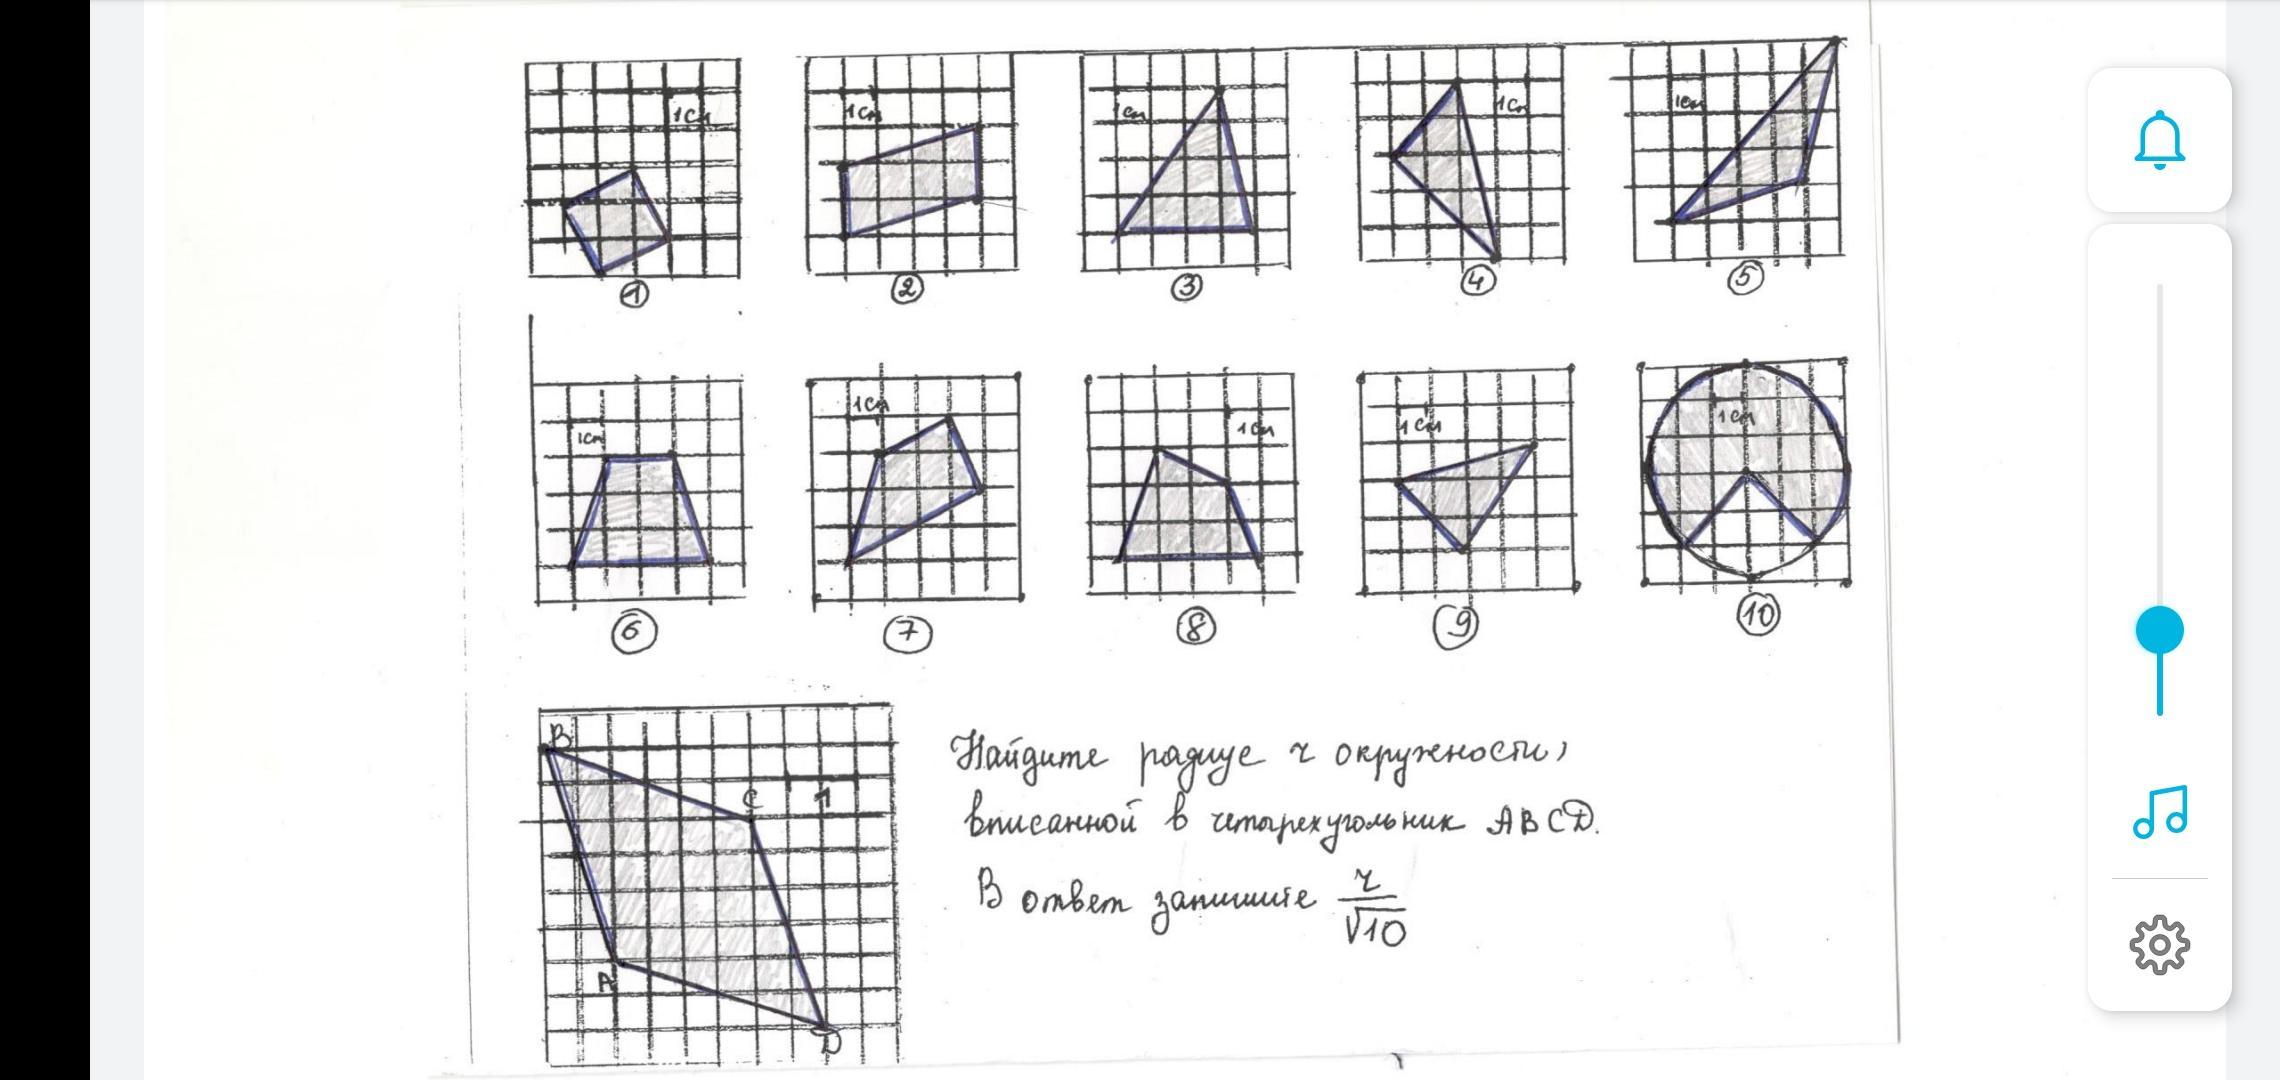 1см
1см
1см
1см
1см
1
2
3
4
5
1см
1см
1см
1см
1см
6
7
8
9
10
B
C 1
A
D
Найдите радиус r окружности,
вписанной в четырехугольник ABCD.
В ответ запишите r/√10